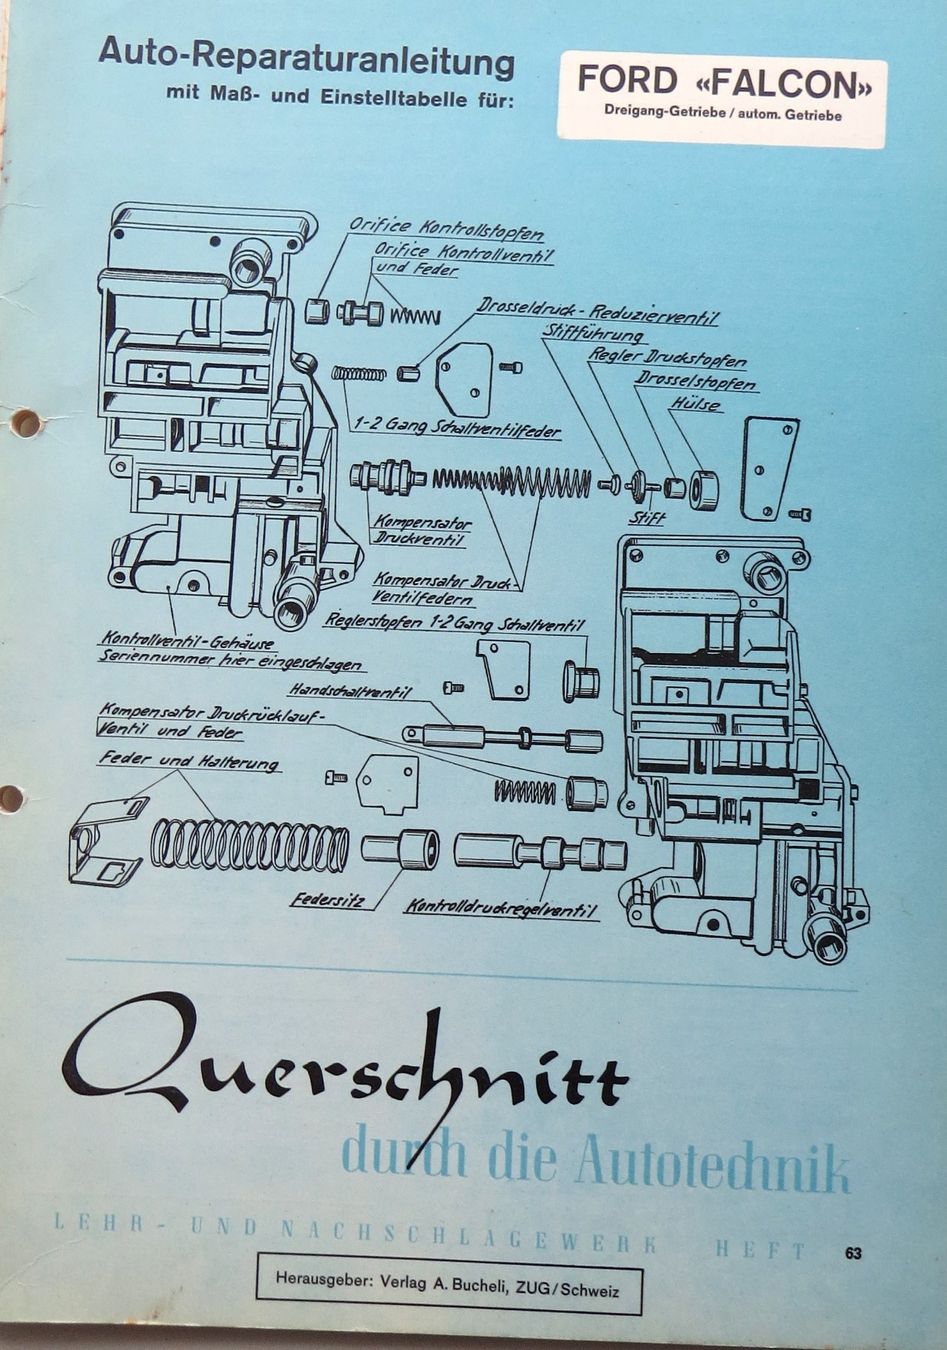 Auto-Reparaturanleitung
mit Maß- und Einstelltabelle für:
FORD «FALCON»
Dreigang-Getriebe / autom. Getriebe
Orifice Kontrollstopfen
Orifice Kontrollventil
und Feder
Drosseldruck-Reduzierventil
Stiftführung
Regler Druckstopfen
Drosselstopfen
Hülse
1-2 Gang Schaltventilfeder
Stift
Kompensator
Druckventil
Kompensator Druck-
Ventilfedern
Reglerstopfen 1-2 Gang Schaltventil
Kontrollventil-Gehäuse
Seriennummer hier eingeschlagen
Handschaltventil
Kompensator Druckrücklauf-
Ventil und Feder
Feder und Halterung
Federsitz
Kontrolldruckregelventil
Querschnitt
durch die Autotechnik
LEHR- UND NACHSCHLAGEWERK HEFT 63
Herausgeber: Verlag A. Bucheli, ZUG/Schweiz